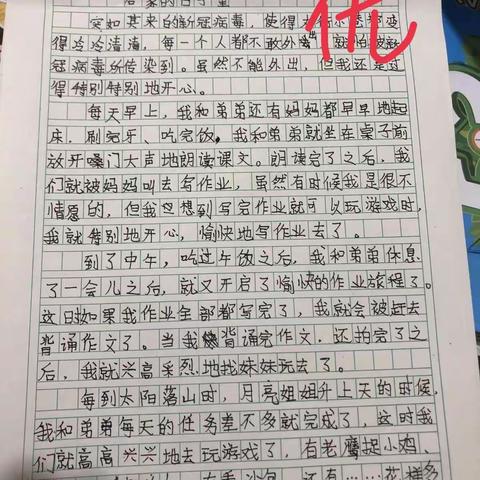 居家的日子里
优
突如其来的新冠病毒，使得大街小巷都变
得冷冷清清，每一个人都不敢外出，就怕被新
冠病毒所传染到。虽然不能外出，但我还是过
得特别特别地开心。
每天早上，我和弟弟还有妈妈都早早地起
床，刷完牙、吃完饭，我和弟弟就坐在桌子前
放开嗓门大声地朗读课文。朗读完了之后，我
们就被妈妈叫去写作业，虽然有时候我是很不
情愿的，但我想到写完作业就可以玩游戏时，
我就特别地开心，愉快地写作业去了。
到了中午，吃过午饭之后，我和弟弟休息
了一会儿之后，就又开启了愉快的作业旅程了。
这日如果我作业全部都写完了，我就会被赶去
背诵作文了。当我背诵完作文，还拍完了之
后，我就兴高采烈地找妹妹玩去了。
每到太阳落山时，月亮姐姐升上天的时候，
我和弟弟每天的任务差不多就完成了，这时我
们就高高兴兴地去玩游戏了，有老鹰捉小鸡、
沙包，还有……花样多